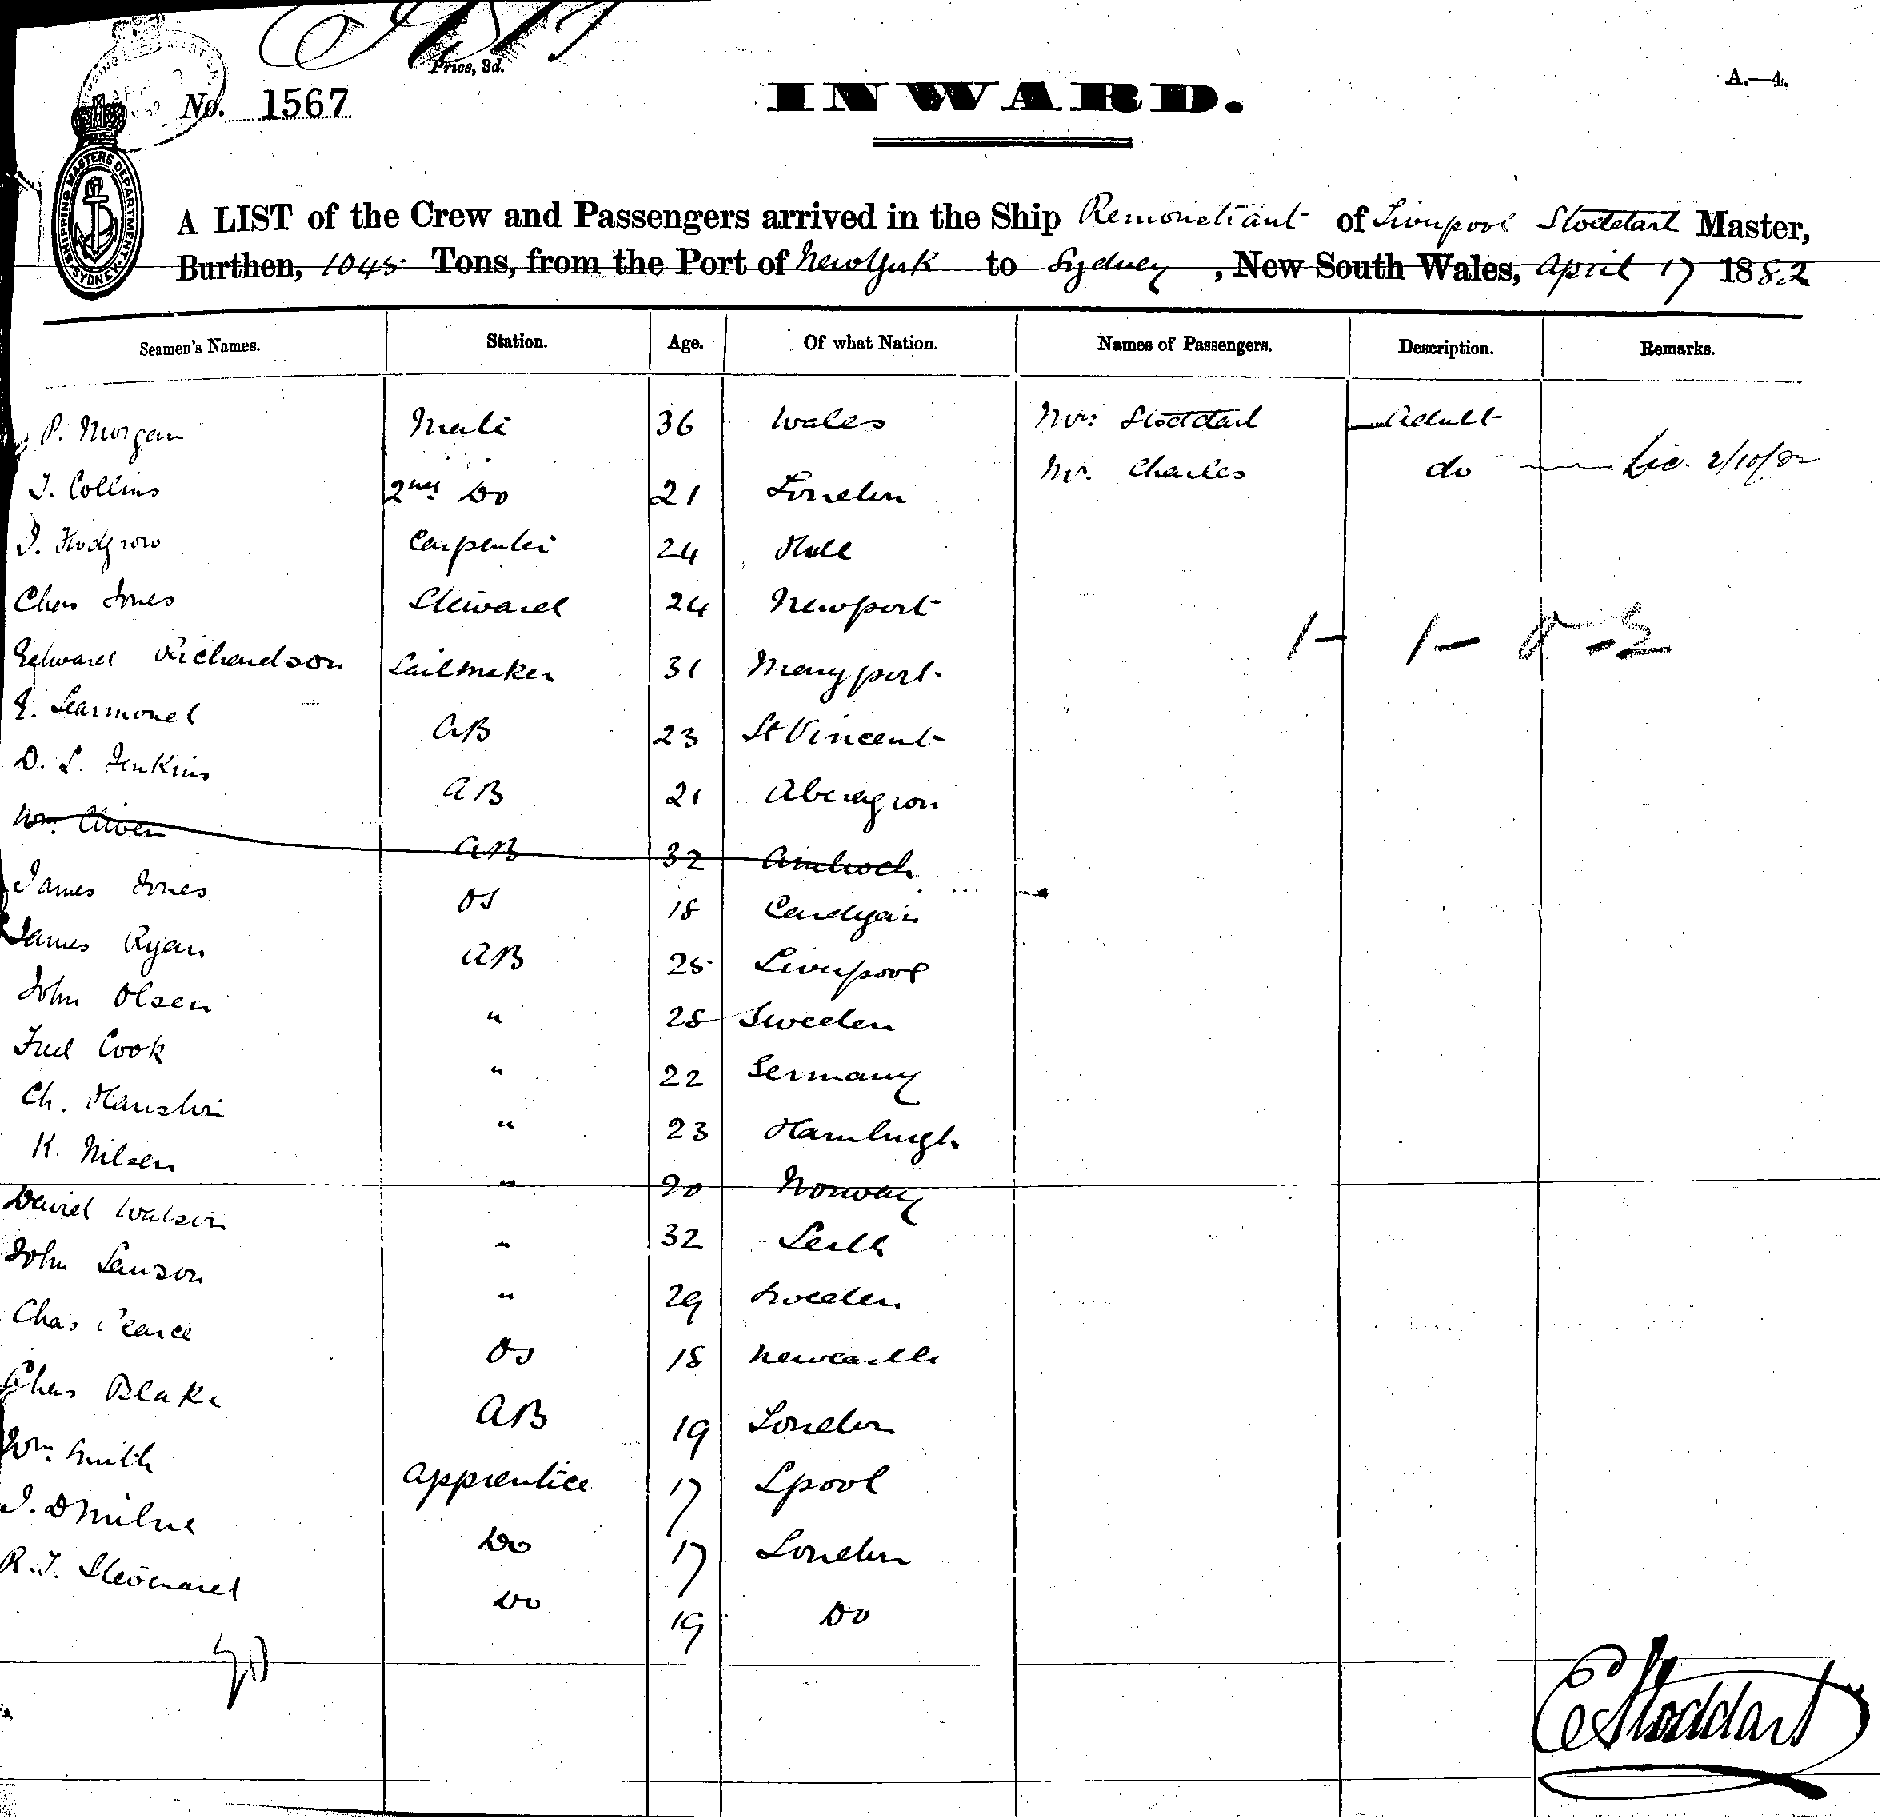 Price, 3d.
No. 1567
INWARD.
A.—4.
SHIPPING MASTERS DEPARTMENT SYDNEY
A LIST of the Crew and Passengers arrived in the Ship Remonstrant of Liverpool Stoddart Master,
Burthen, 1045 Tons, from the Port of New York to Sydney, New South Wales, April 17 1882
Seamen's Names. Station. Age. Of what Nation. Names of Passengers. Description. Remarks.
P. Morgan Mate 36 Wales Mrs Stoddart Adult
Mr. Charles do Lic. 2/10/82
J. Collins 2nd Do 21 London
Carpenter 24 Hull
Chas Jones Steward 24 Newport
Edward Richardson Sailmaker 31 Maryport
E. Learmond AB 23 St Vincent
D. L. Jenkins AB 21
Wm. AB 32 Amlwch
James Jones OS 18 Cardigan
James Ryan AB 25 Liverpool
John Olsen " 28 Sweden
Fred Cook " 22 Germany
Ch. " 23 Hamburgh
K. Nilsen " 20 Norway
David Watson " 32 Leith
John Lawson " 29 Sweden
Chas Pearce OS 18 Newcastle
Chas Blake AB 19 London
Wm. Smith Apprentice 17 Lpool
J. D Milne Do 17 London
R. J. Do 19 Do
E Stoddart